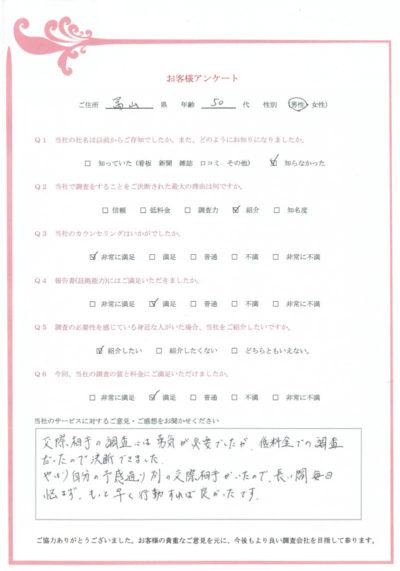 お客様アンケート
ご住所 富山 県 年齢 50 代 性別 (男性・女性)
Q1 当社の社名は以前からご存知でしたか。また、どのようにお知りになりましたか。
□ 知っていた (看板 新聞 雑誌 口コミ その他) ☑ 知らなかった
Q2 当社で調査をすることをご決断された最大の理由は何ですか。
□ 信頼 □ 低料金 □ 調査力 ☑ 紹介 □ 知名度
Q3 当社のカウンセリングはいかがでしたか。
☑ 非常に満足 □ 満足 □ 普通 □ 不満 □ 非常に不満
Q4 報告書(証拠能力)にはご満足いただきましたか。
□ 非常に満足 ☑ 満足 □ 普通 □ 不満 □ 非常に不満
Q5 調査の必要性を感じている身近な人がいた場合、当社をご紹介したいですか。
☑ 紹介したい □ 紹介したくない □ どちらともいえない。
Q6 今回、当社の調査の質と料金にご満足いただけましたか。
□ 非常に満足 ☑ 満足 □ 普通 □ 不満 □ 非常に不満
当社のサービスに対するご意見・ご感想をお聞かせください
交際相手の調査には勇気が必要でしたが、低料金での調査
だったので決断できました。
やはり自分の予感通り別の交際相手がいたので、長い間毎日
悩まず、もっと早く行動すれば良かったです。
ご協力ありがとうございました。お客様の貴重なご意見を元に、今後もより良い調査会社を目指して参ります。